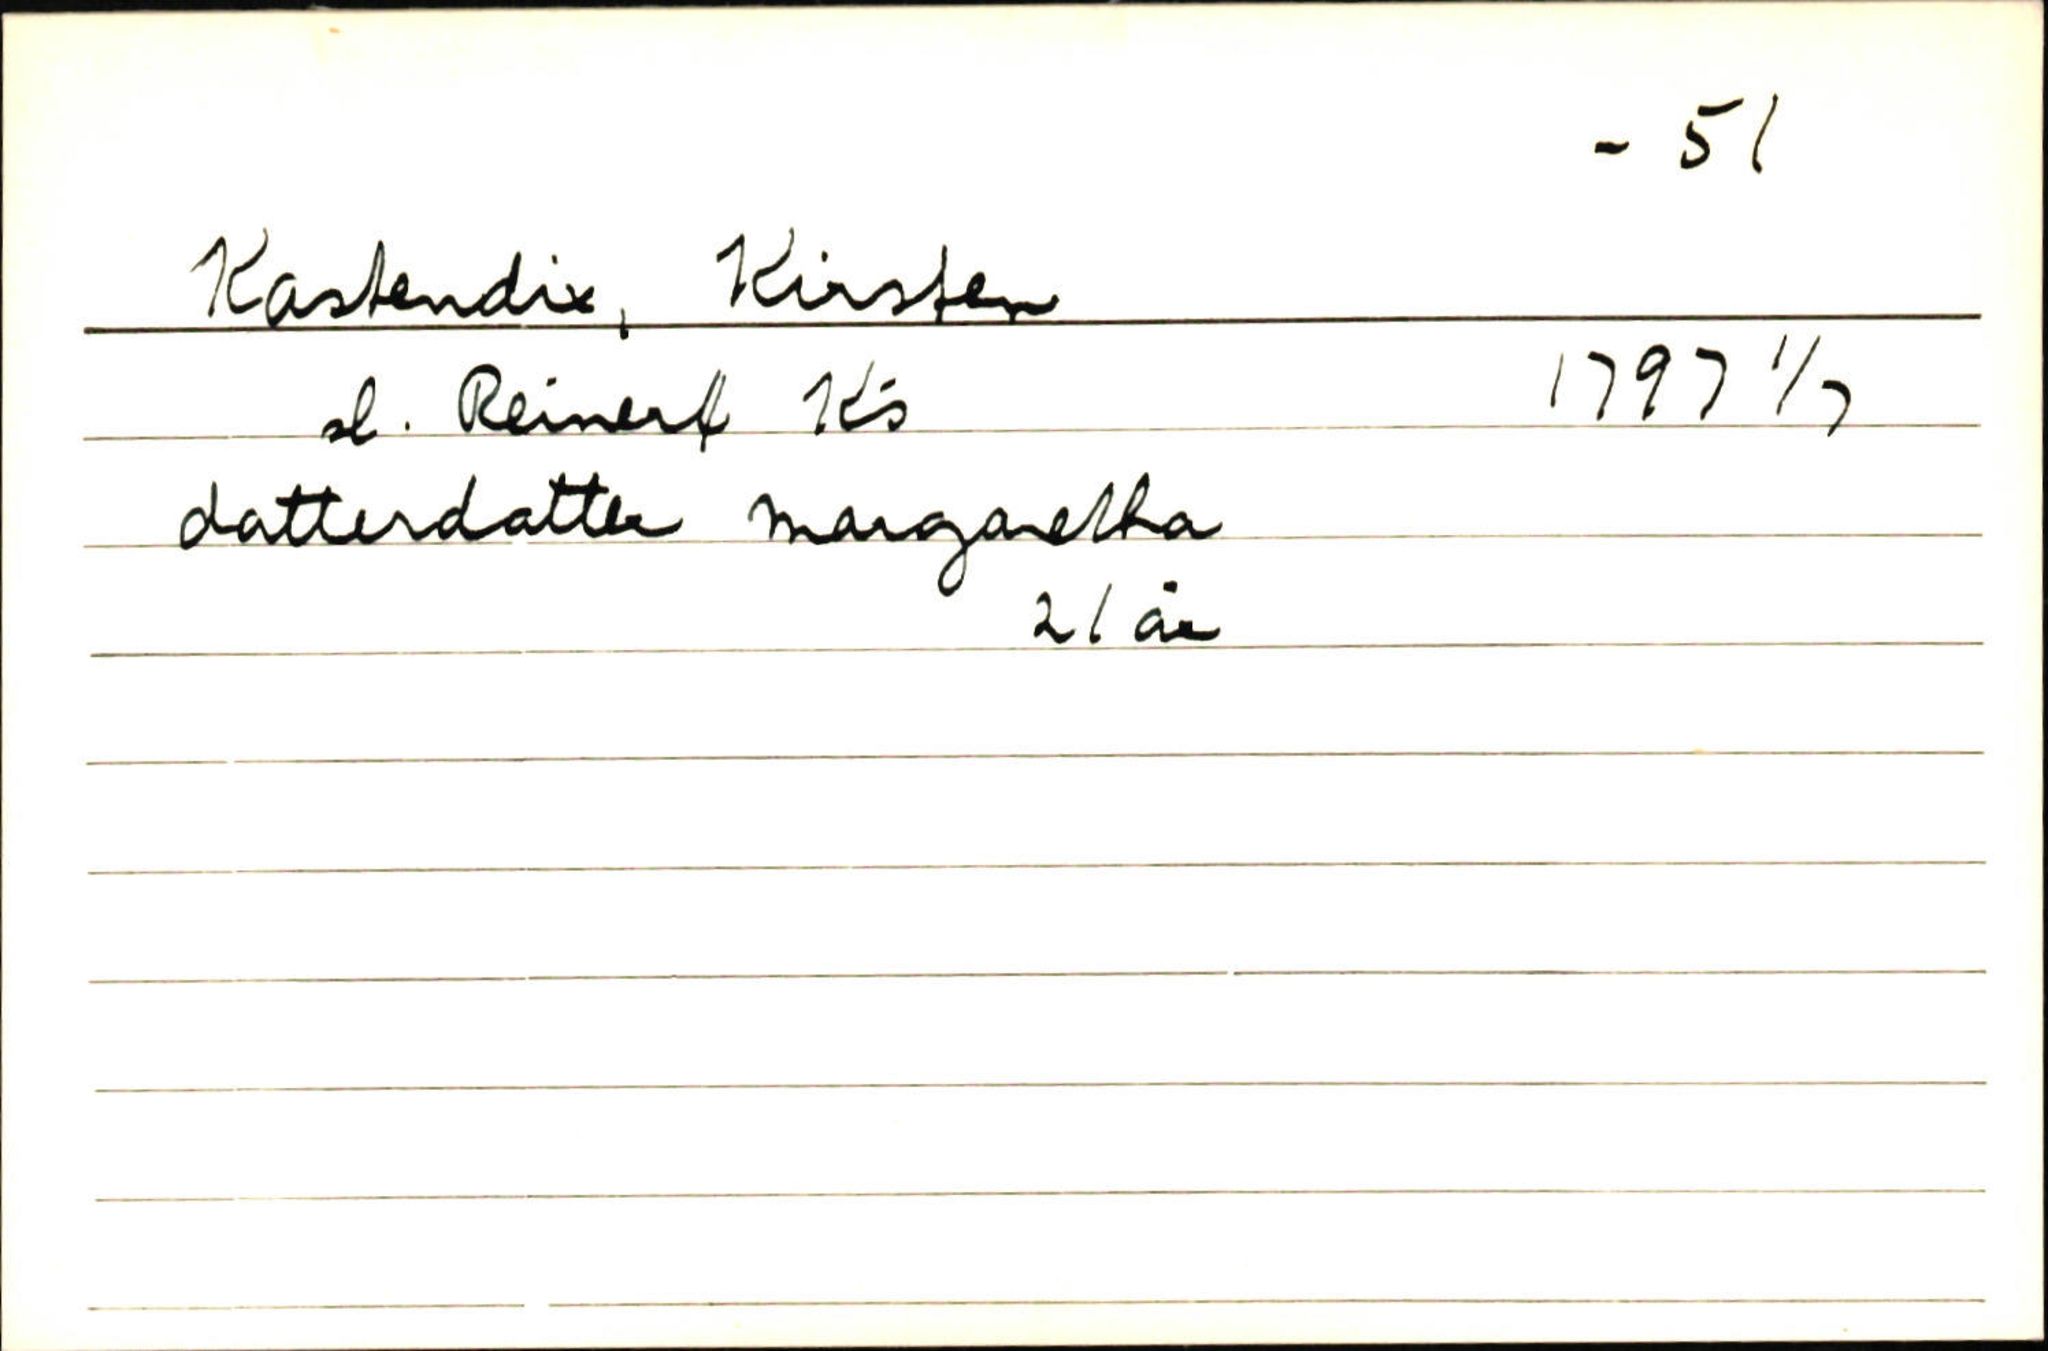 - 51
Kastendix, Kirsten
sl. Reinert K's 1797 1/7
datterdatter Margaretha
21 år